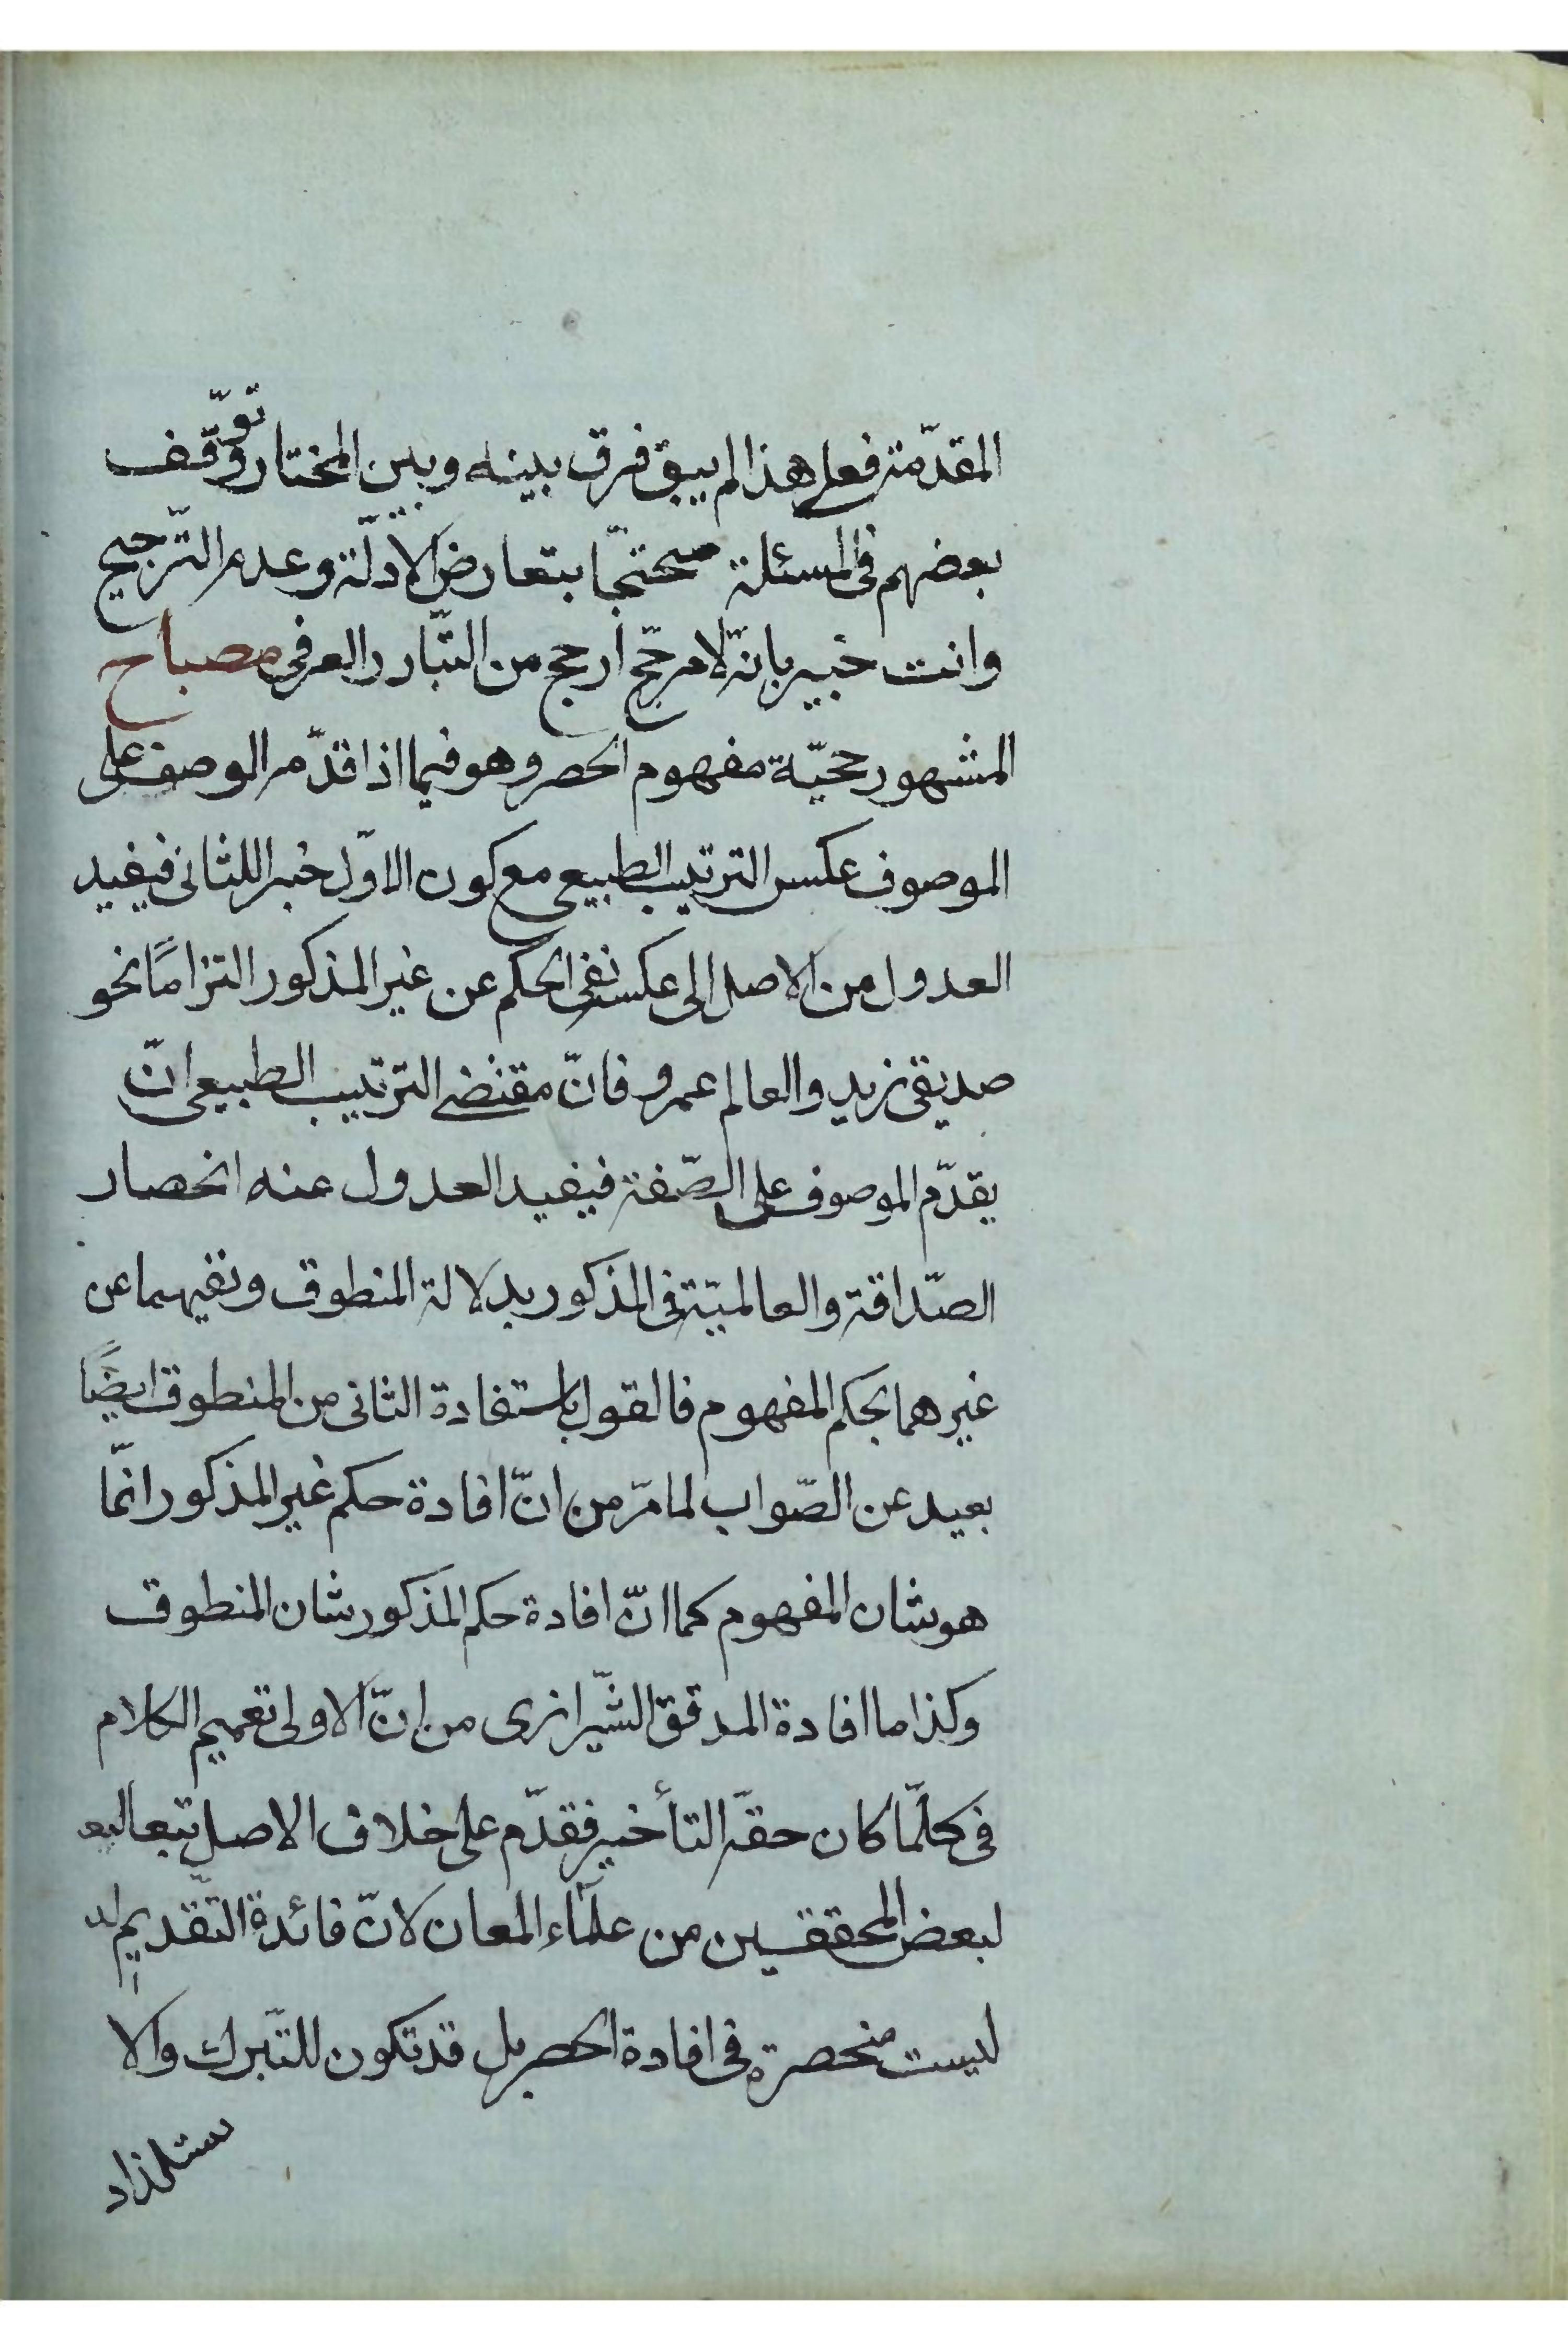 المقدّمة فعلى هذا لم يبق فرق بينه وبين المختار وتوقّف
بعضهم فى المسئلة محتجّا بتعارض الادلّة وعدم التّرجيح
وانت خبير بانّه لا مرجّح ارجح من التّبادر العرفى مصباح
المشهور حجيّة مفهوم الحصر وهو فيما اذا قدّم الوصف على
الموصوف عكس الترتيب الطبيعى مع كون الاوّل خبرا للثانى فيفيد
العدول من الاصل الى عكسه نفى الحكم عن غير المذكور التزامًا نحو
صديقى زيد والعالم عمرو فانّ مقتضى الترتيب الطبيعى انّ
يقدّم الموصوف على الصّفة فيفيد العدول عنه انحصار
الصّداقة والعالميّة فى المذكور بدلالة المنطوق ونفيهما عن
غيرهما بحكم المفهوم فالقول باستفادة الثانى من المنطوق ايضًا
بعيد عن الصّواب لما مرّ من انّ افادة حكم غير المذكور انّما
هو شان المفهوم كما انّ افادة حكم المذكور شان المنطوق
وكذا ما افادة المدقق الشّيرازى من انّ الاولى تعميم الكلام
فى كلّما كان حقّه التأخير فقدّم على خلاف الاصل تبعا
لبعض المحققين من علمآء المعان لانّ فائدة التّقديم
ليست منحصرة فى افادة الحصر بل قد تكون للتّبرك والا
ستلذاد